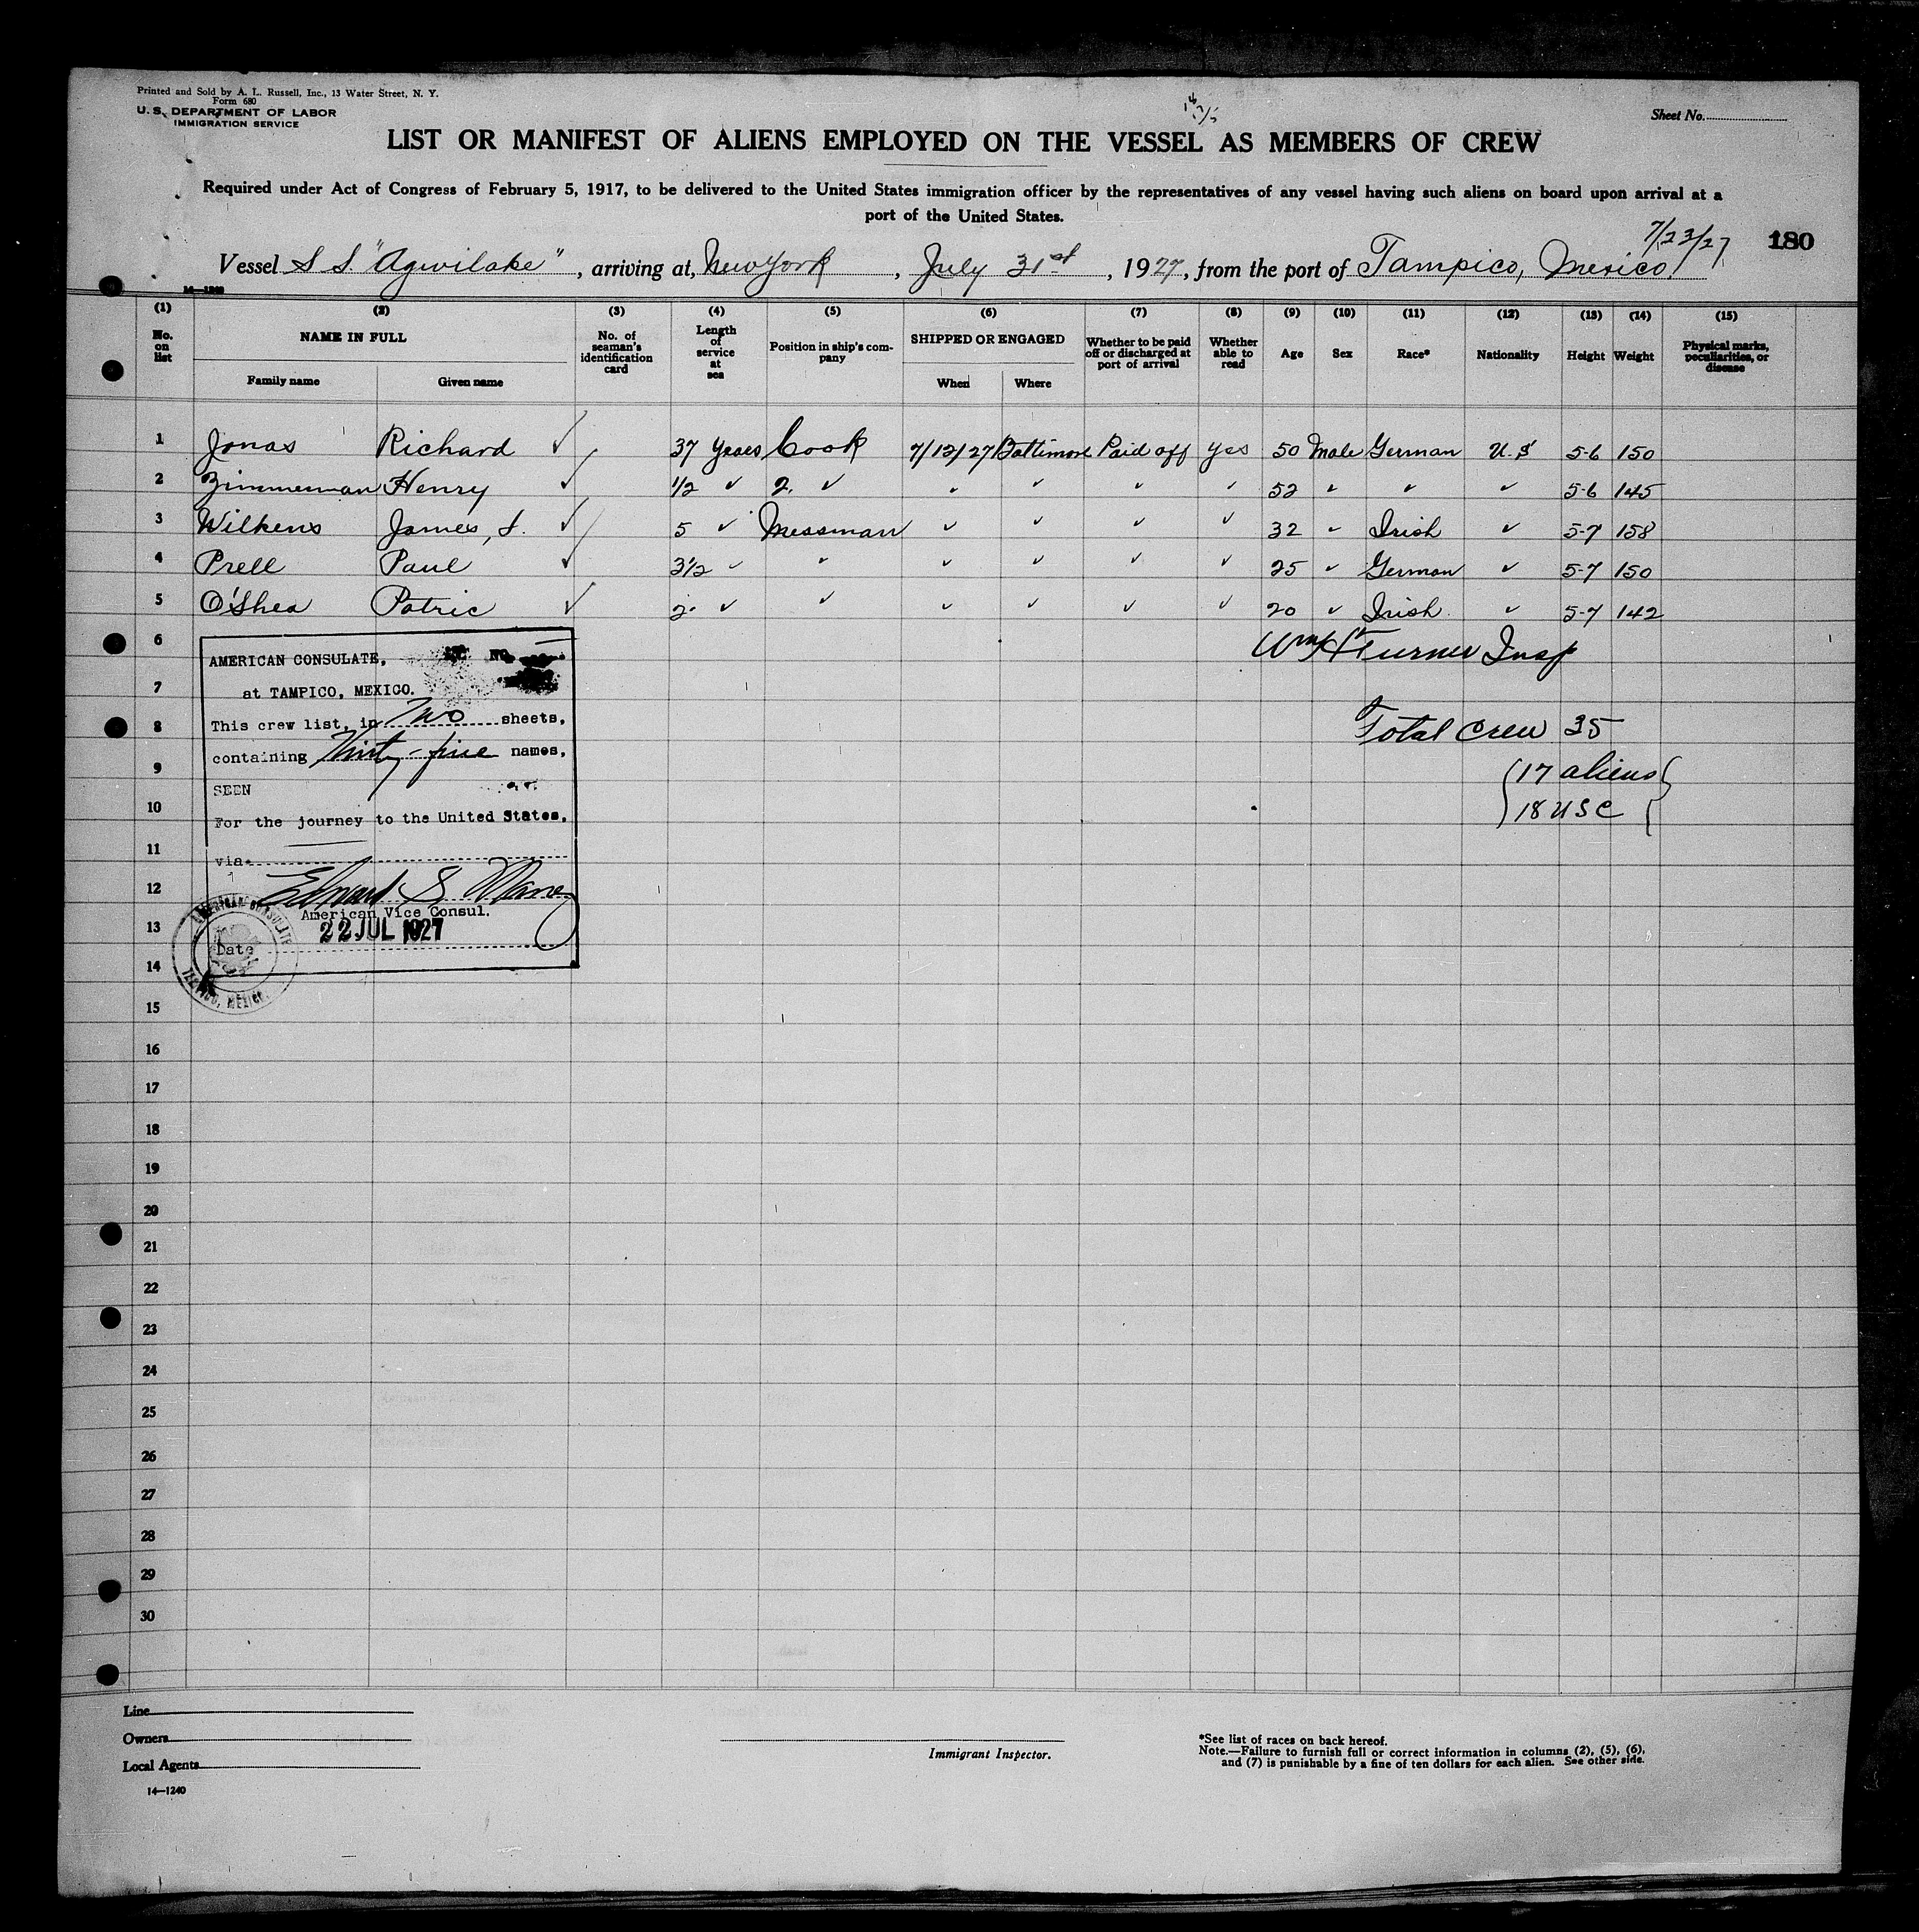 Printed and Sold by A. L. Russell, Inc., 13 Water Street, N. Y.
Form 680
U. S. DEPARTMENT OF LABOR
IMMIGRATION SERVICE
Sheet No.
LIST OR MANIFEST OF ALIENS EMPLOYED ON THE VESSEL AS MEMBERS OF CREW
Required under Act of Congress of February 5, 1917, to be delivered to the United States immigration officer by the representatives of any vessel having such aliens on board upon arrival at a
port of the United States.
7/23/27 180
Vessel S S. "Agwilake", arriving at, New York, July 31st, 1927, from the port of Tampico, Mexico
14—1240
(1) (2) (3) (4) (5) (6) (7) (8) (9) (10) (11) (12) (13) (14) (15)
No. on list NAME IN FULL No. of seaman's identification card Length of service at sea Position in ship's company SHIPPED OR ENGAGED Whether to be paid off or discharged at port of arrival Whether able to read Age Sex Race* Nationality Height Weight Physical marks, peculiarities, or disease
Family name Given name When Where
1 Jonas Richard ✓ 37 years Cook 7/12/27 Baltimore Paid off yes 50 Male German U.S 5-6 150
2 Zimmerman Henry ✓ 1/2 ✓ 2. ✓ ✓ ✓ ✓ ✓ 52 ✓ ✓ ✓ 5-6 145
3 Wilkens James, J. ✓ 5 ✓ Messman ✓ ✓ ✓ ✓ 32 ✓ Irish ✓ 5-7 158
4 Prell Paul ✓ 3 1/2 ✓ ✓ ✓ ✓ ✓ ✓ 25 ✓ German ✓ 5-7 150
5 O'Shea Patric ✓ 2 ✓ ✓ ✓ ✓ ✓ ✓ 20 ✓ Irish ✓ 5-7 142
6
Wm H Turner Insp
AMERICAN CONSULATE,
at TAMPICO, MEXICO.
7
This crew list, in Two sheets,
8
Total Crew 35
containing Thirty-five names,
9
17 aliens
SEEN
10
18 USC
For the journey to the United States,
11
via
12
Edward S.
American Vice Consul.
13
22 JUL 1927
Date
AMERICAN CONSULATE
TAMPICO, MEXICO.
14
15
16
17
18
19
20
21
22
23
24
25
26
27
28
29
30
Line
Owners
Local Agents
14—1240
Immigrant Inspector.
*See list of races on back hereof.
Note.—Failure to furnish full or correct information in columns (2), (5), (6),
and (7) is punishable by a fine of ten dollars for each alien. See other side.